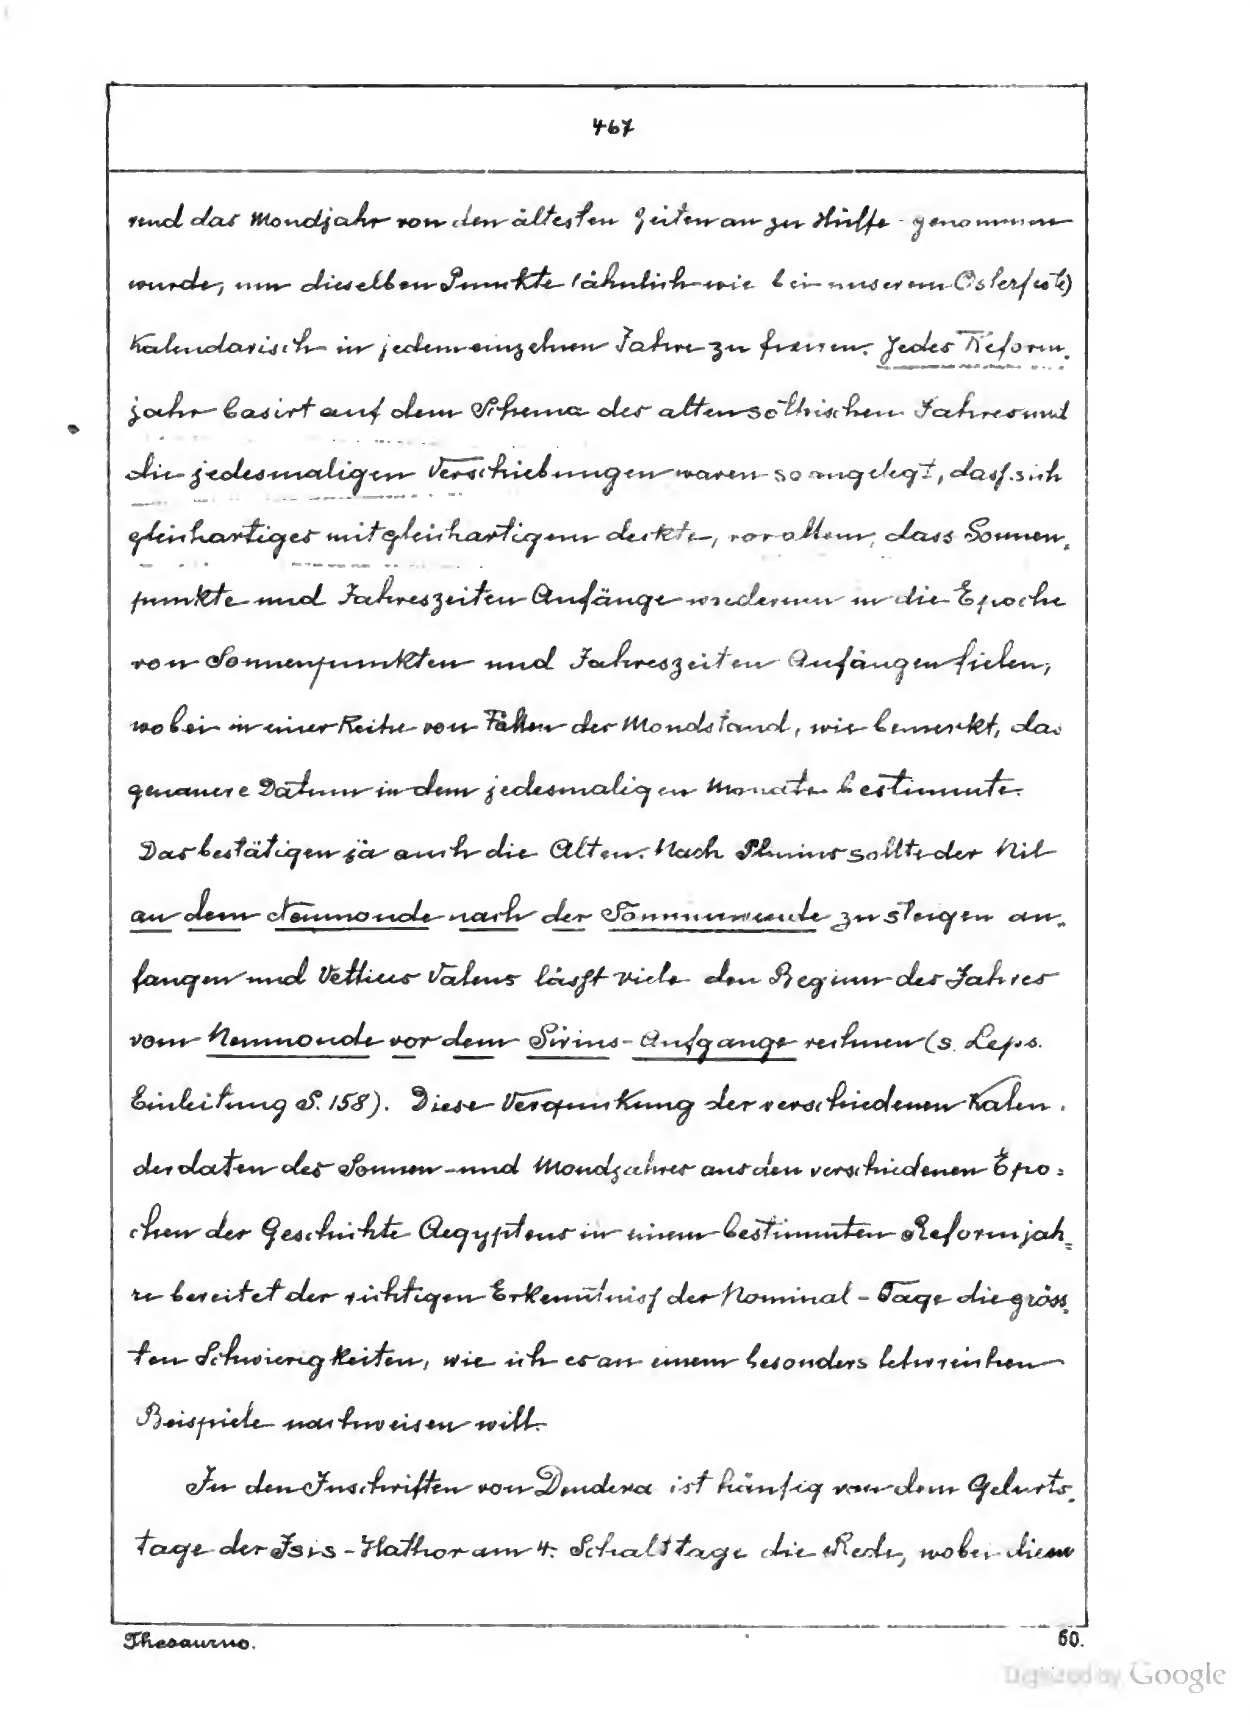 467
und das Mondjahr von den ältesten Zeiten an zu Hülfe genommen
wurde, um dieselben Punkte (ähnlich wie bei unserem Osterfeste)
Kalendarisch in jedem einzelnen Jahre zu fixiren. Jedes Reform-
jahr basirt auf dem Schema des alten sothischen Jahres und
die jedesmaligen Verschiebungen waren so angelegt, dass sich
gleichartiges mit gleichartigem deckte, vor allem, dass Sonnen-
punkte und Jahreszeiten Anfänge wiederum in die Epoche
von Sonnenpunkten und Jahreszeiten Anfängen fielen,
wobei in einer Reihe von Fällen der Mondstand, wie bemerkt, das
genauere Datum in dem jedesmaligen Monate bestimmte.
Das bestätigen ja auch die Alten. Nach Plinius sollte der Nil
an dem Neumonde nach der Sonnenwende zu steigen an-
fangen und Vettius Valens lässt viele den Beginn des Jahres
vom Neumonde vor dem Sirius-Aufgange rechnen (s. Leps.
Einleitung S. 158). Diese Verquickung der verschiedenen Kalen-
derdaten des Sonnen- und Mondjahres aus den verschiedenen Epo-
chen der Geschichte Aegyptens in einem bestimmten Reformjah-
re bereitet der richtigen Erkenntniss der Nominal-Tage die gröss-
ten Schwierigkeiten, wie ich es an einem besonders lehrreichen
Beispiele nachweisen will.
In den Inschriften von Dendera ist häufig von dem Geburts-
tage der Isis-Hathor am 4. Schalttage die Rede, wobei dieser
Thesaurus.
60.
Digitized by Google